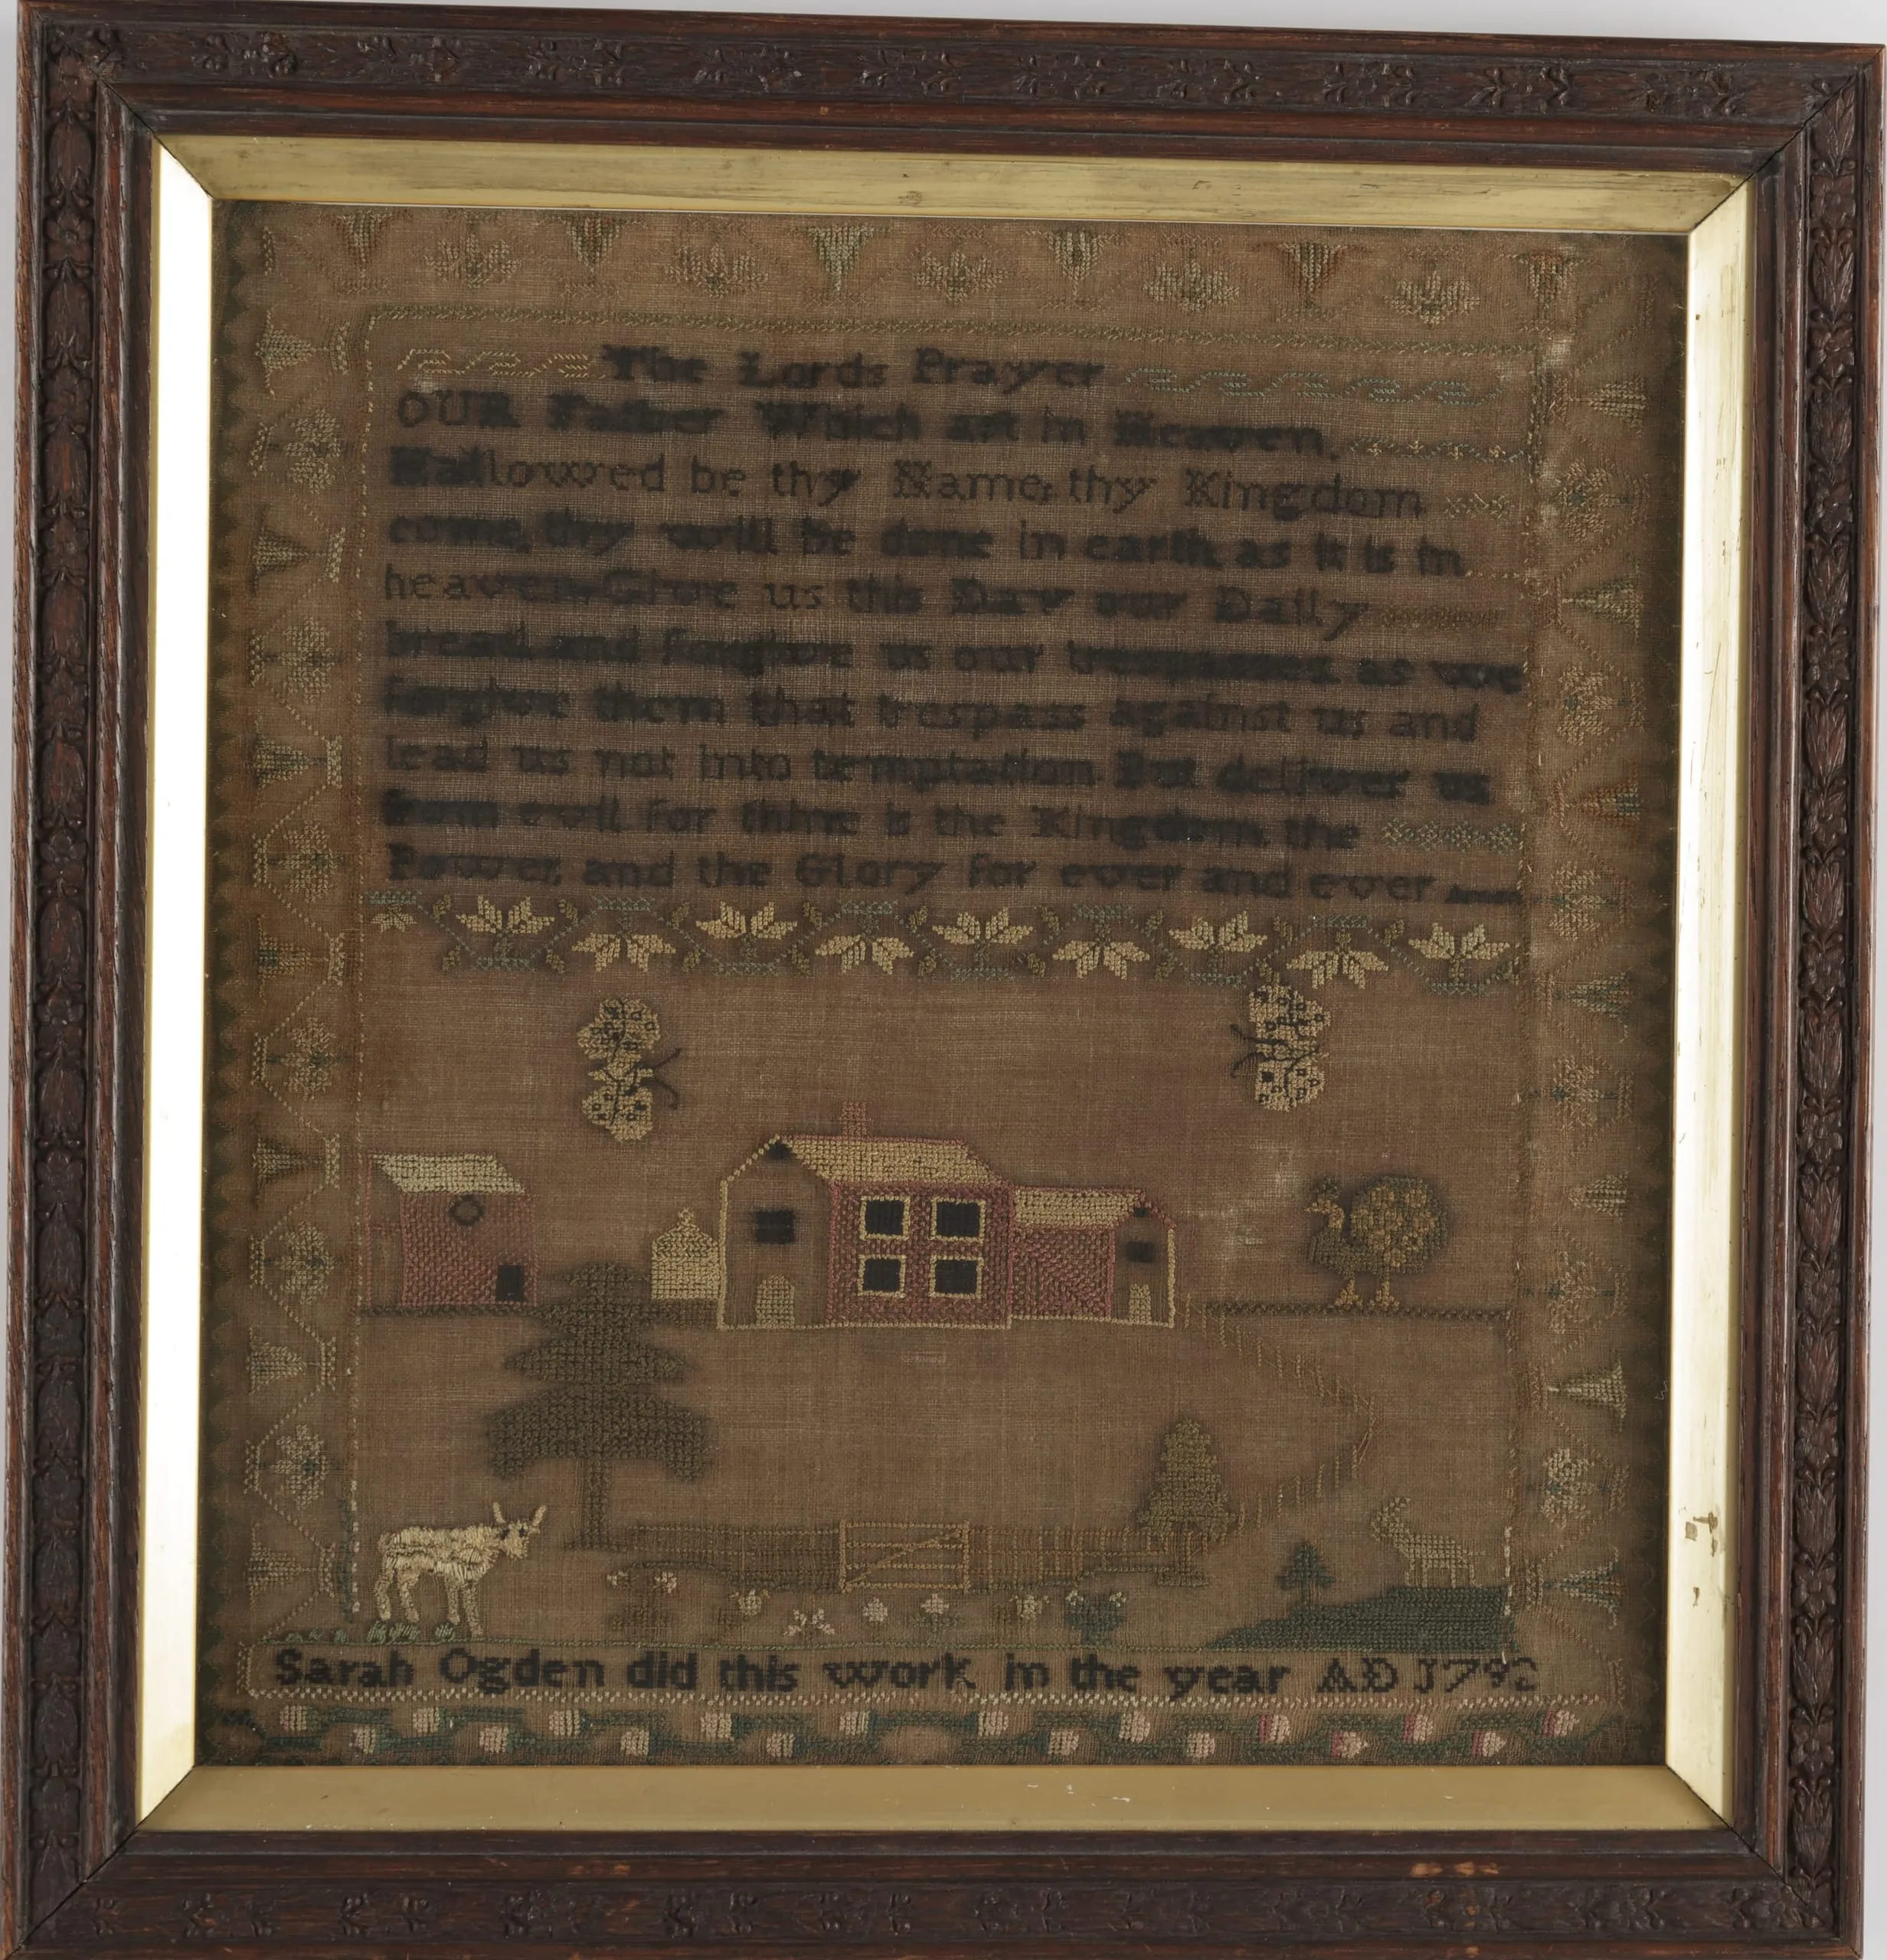 The Lords Prayer
OUR Father Which art in Heaven,
Hallowed be thy Name, thy Kingdom
come, thy will be done in earth, as it is in
heaven, Give us this Day our Daily
bread, and forgive us our trespasses as we
forgive them that trespass against us, and
lead us not into temptation But deliver us
from evil for thine is the Kingdom, the
Power, and the Glory for ever and ever
Sarah Ogden did this work in the year AD 1792